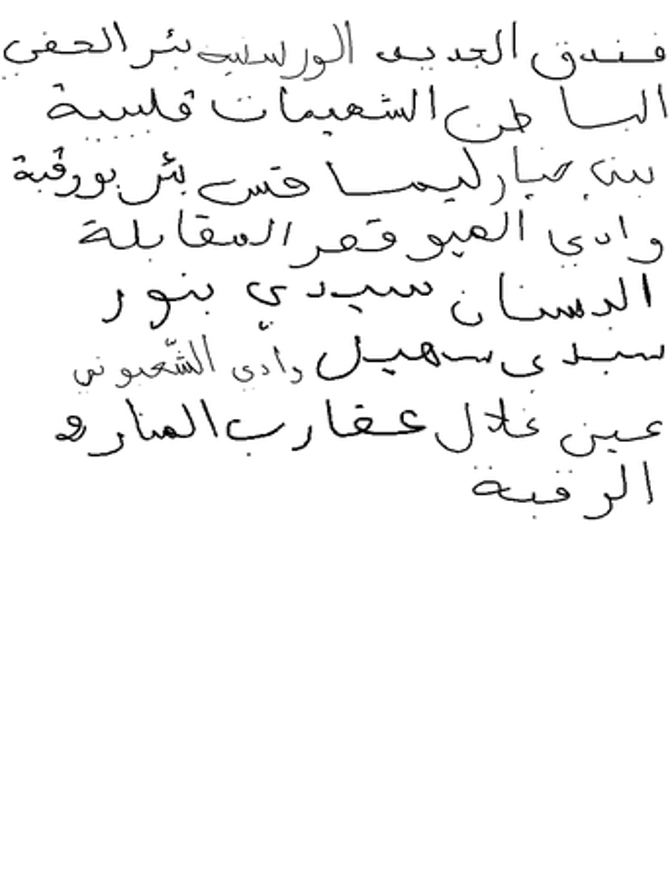 فندق الجديد الورسنية بئر الحفي
الباطن الشعيمات قليبية
بني خيار ليمسا قس بئر بورقبة
وادي العيو قمر المقابلة
البستان سيدي بنور
سيدي سهيل وادي الشعبوني
عين غلال عقارب المنار 2
الرقبة